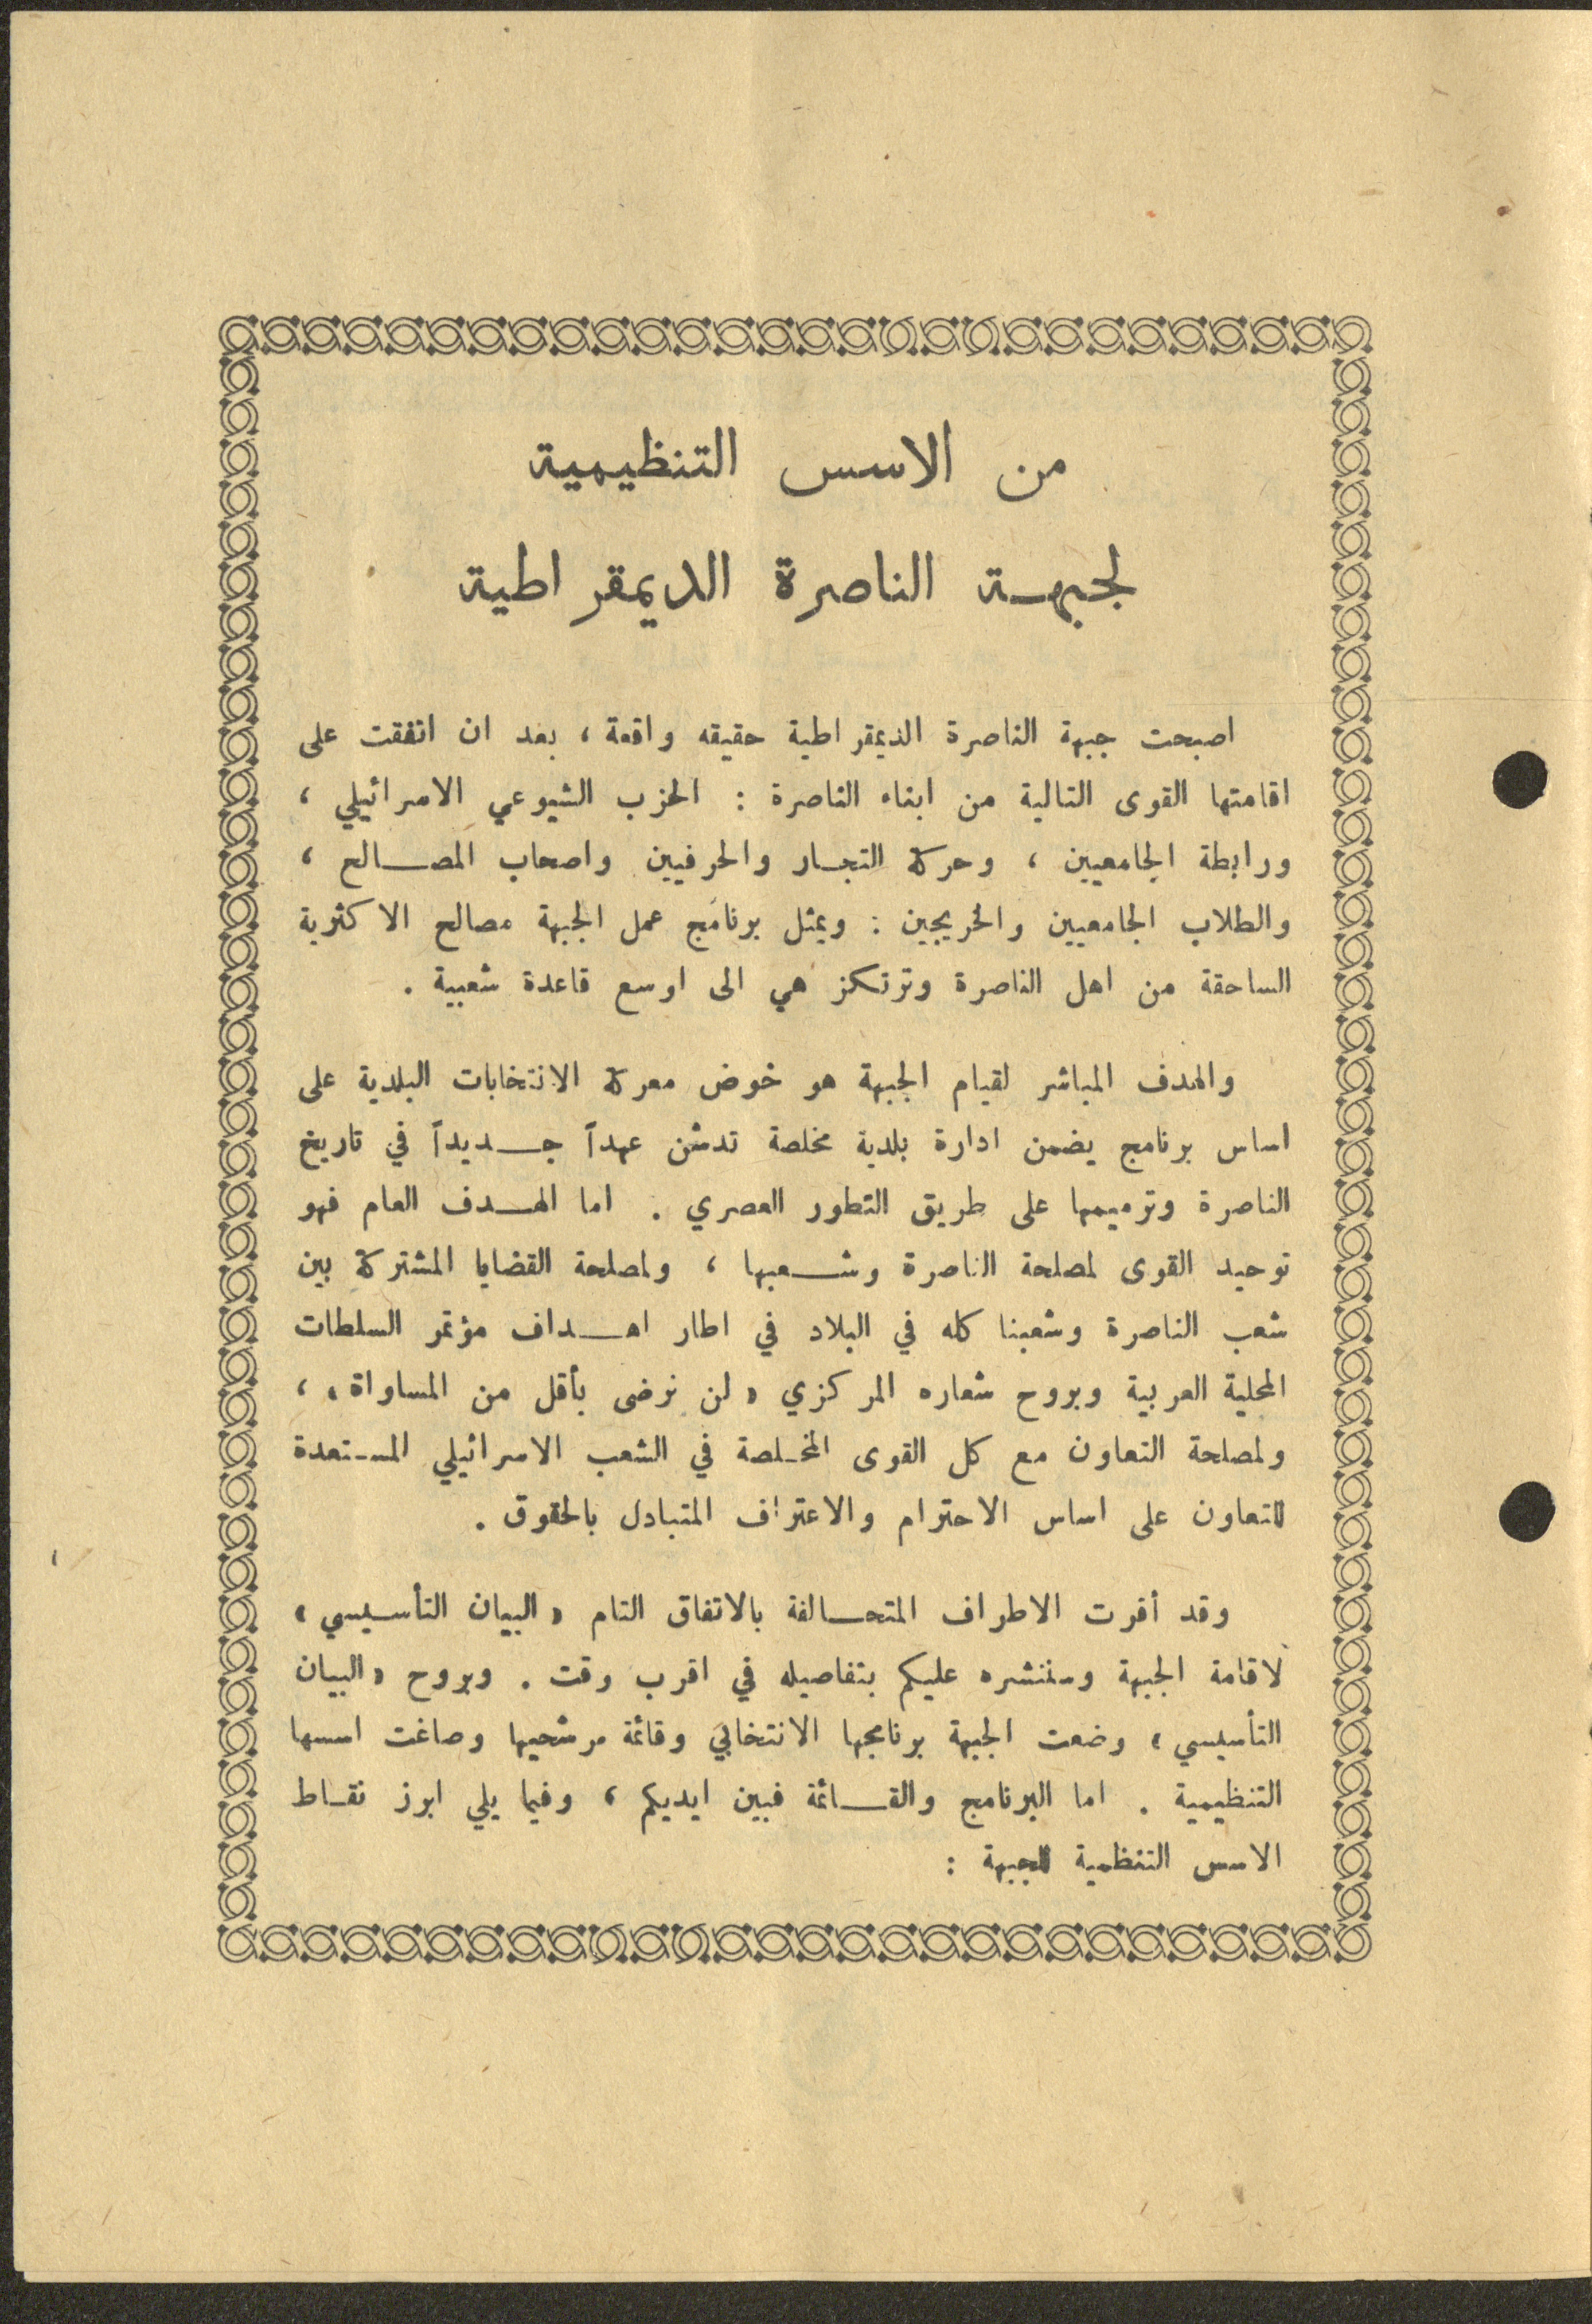 من الاسس التنظيمية
لجبهة الناصرة الديمقراطية
اصبحت جبهة الناصرة الديمقراطية حقيقه واقعة ، بعد ان اتفقت على
اقامتها القوى التالية من ابناء الناصرة : الحزب الشيوعي الاسرائيلي ،
ورابطة الجامعيين ، وحركة التجار والحرفيين واصحاب المصالح ،
والطلاب الجامعيين والخريجين : ويمثل برنامج عمل الجبهة مصالح الاكثرية
الساحقة من اهل الناصرة وترتكز هي الى اوسع قاعدة شعبية .
والهدف المباشر لقيام الجبهة هو خوض معركة الانتخابات البلدية على
اساس برنامج يضمن ادارة بلدية مخلصة تدشن عهداً جديداً في تاريخ
الناصرة وترميمها على طريق التطور العصري . اما الهدف العام فهو
توحيد القوى لمصلحة الناصرة وشعبها ، ولمصلحة القضايا المشتركة بين
شعب الناصرة وشعبنا كله في البلاد في اطار اهداف مؤتمر السلطات
المحلية العربية وبروح شعاره المركزي « لن نرضى بأقل من المساواة » ،
ولمصلحة التعاون مع كل القوى المخلصة في الشعب الاسرائيلي المستعدة
للتعاون على اساس الاحترام والاعتراف المتبادل بالحقوق .
وقد أقرت الاطراف المتحالفة بالاتفاق التام « البيان التأسيسي »
لاقامة الجبهة وسننشره عليكم بتفاصيله في اقرب وقت . وبروح « البيان
التأسيسي » وضعت الجبهة برنامجها الانتخابي وقائمة مرشحيها وصاغت اسسها
التنظيمية . اما البرنامج والقائمة فبين ايديكم ، وفيما يلي ابرز نقاط
الاسس التنظمية للجبهة :